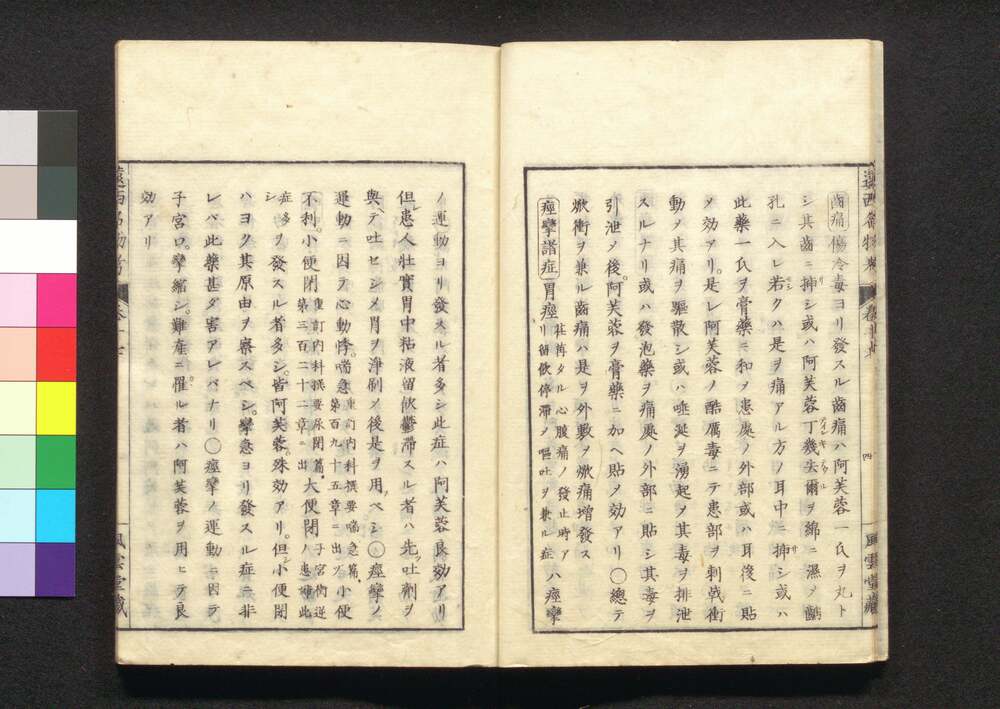 齒痛傷冷毒ヨリ發スル齒痛ハ阿芙蓉一氏ヲ丸ト
シ其齒ニ挿シ或ハ阿芙蓉丁幾失爾ヲ綿ニ濕メ齲
孔ニ入レ若クハ是ヲ痛アル方ノ耳中ニ挿シ或ハ
此藥一氏ヲ膏藥ニ和メ患處ノ外部或ハ耳後ニ貼
メ効アリ。是レ阿芙蓉ノ酷厲毒ニテ患部ヲ刺戟衝
動メ其痛ヲ驅散シ或ハ唾涎ヲ湧起メ其毒ヲ排泄
スルナリ或ハ發泡藥ヲ痛處ノ外部ニ貼シ其毒ヲ
引泄メ後。阿芙蓉ヲ膏藥ニ加ヘ貼メ効アリ〇總テ
焮衝ヲ兼ル齒痛ハ是ヲ外敷メ焮痛增發ス
痙攣諸症 胃痙
心腹痛ノ發止時ア
リ留飲停滯ノ嘔吐ヲ兼ル症
ハ痙攣
四
風雲堂藏
ノ運動ヨリ發スル者多シ此症ハ阿芙蓉良効アリ
但患人壯實胃中粘液留飲鬱滯スル者ハ先吐劑ヲ
與ヘテ吐セシメ胃ヲ淨刷メ後是ヲ用ベシ〇痙攣ノ
運動ニ因ヲ心動悸。喘急
重訂内科撰要喘急篇。
第百九十五章ニ出ヅ
小便
不利。小便閉
重訂内科撰要尿閉篇。
第三百二十二章ニ出
大便閉
症多
シ
ヲ發スル者多シ。皆阿芙蓉。殊効アリ。但シ小便閉
ハヨク其原由ヲ察スベシ。攣急ヨリ發スル症ニ非
レバ此藥甚ダ害アレバナリ〇痙攣ノ運動ニ因テ
子宮口。攣縮シ。難産ニ罹ル者ハ阿芙蓉ヲ用ヒテ良
効アリ